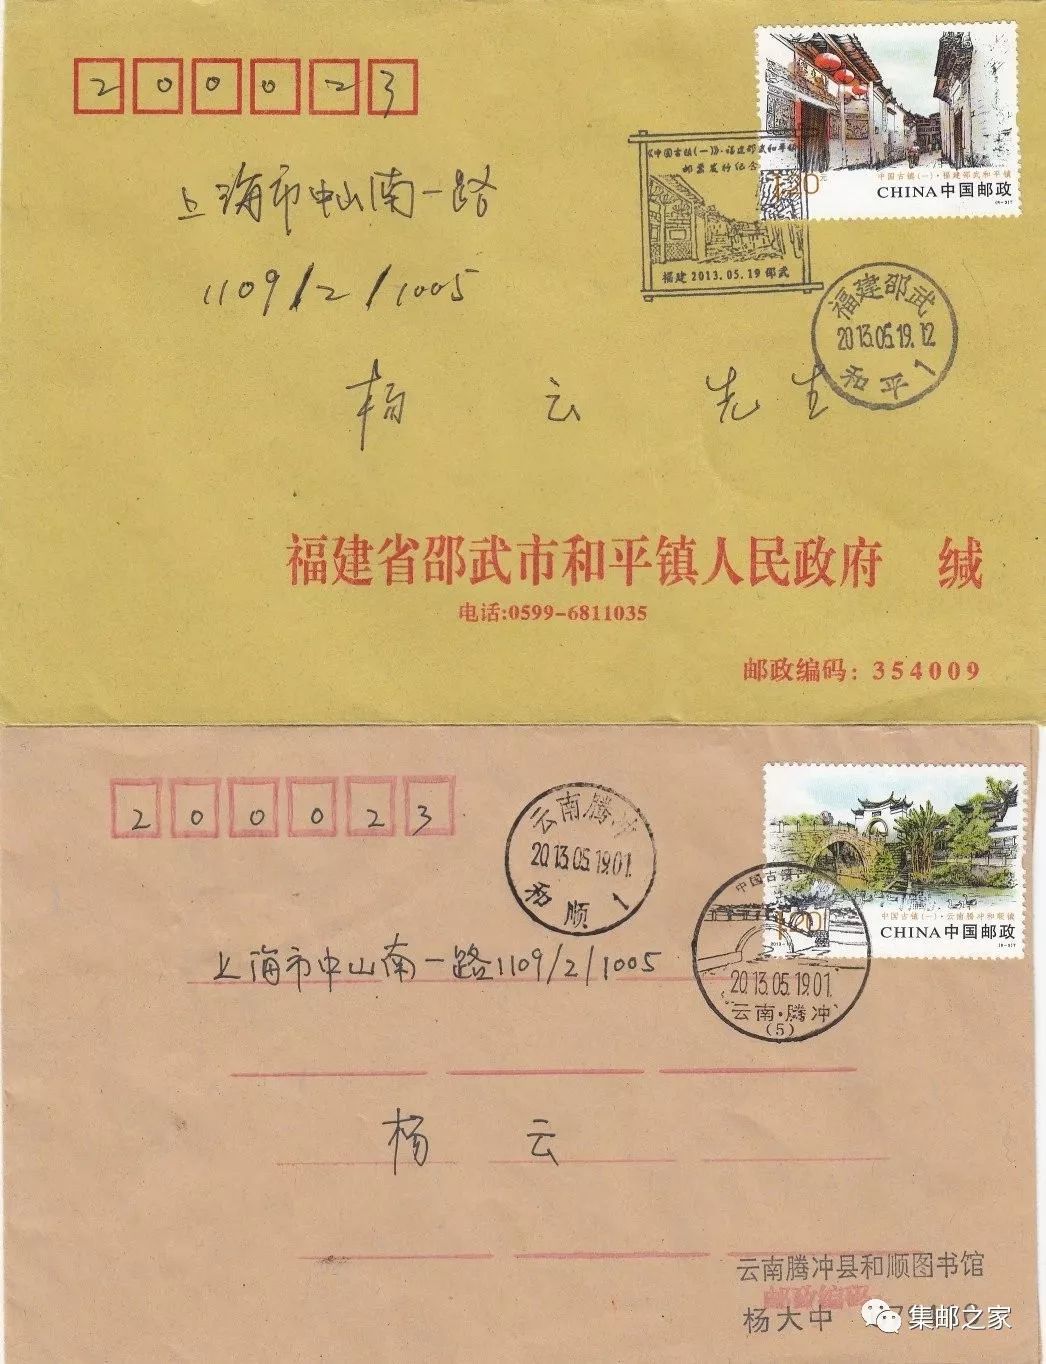 200023
上海市中山南一路
1109/2/1005
杨 云 先生
《中国古镇(一)》·福建邵武和平镇
邮票发行纪念
福建 2013.05.19 邵武
1.20元
中国古镇(一)·福建邵武和平镇
CHINA中国邮政
福建邵武
2013.05.19.12
和平1
福建省邵武市和平镇人民政府 缄
电话:0599-6811035
邮政编码: 354009
200023
云南腾冲
2013.05.19.01.
和顺1
1.20
中国古镇(一)·云南腾冲和顺镇
CHINA中国邮政
中国古镇
2013.05.19.01
云南·腾冲
(5)
上海市中山南一路1109/2/1005
杨 云
云南腾冲县和顺图书馆
杨大中
集邮之家